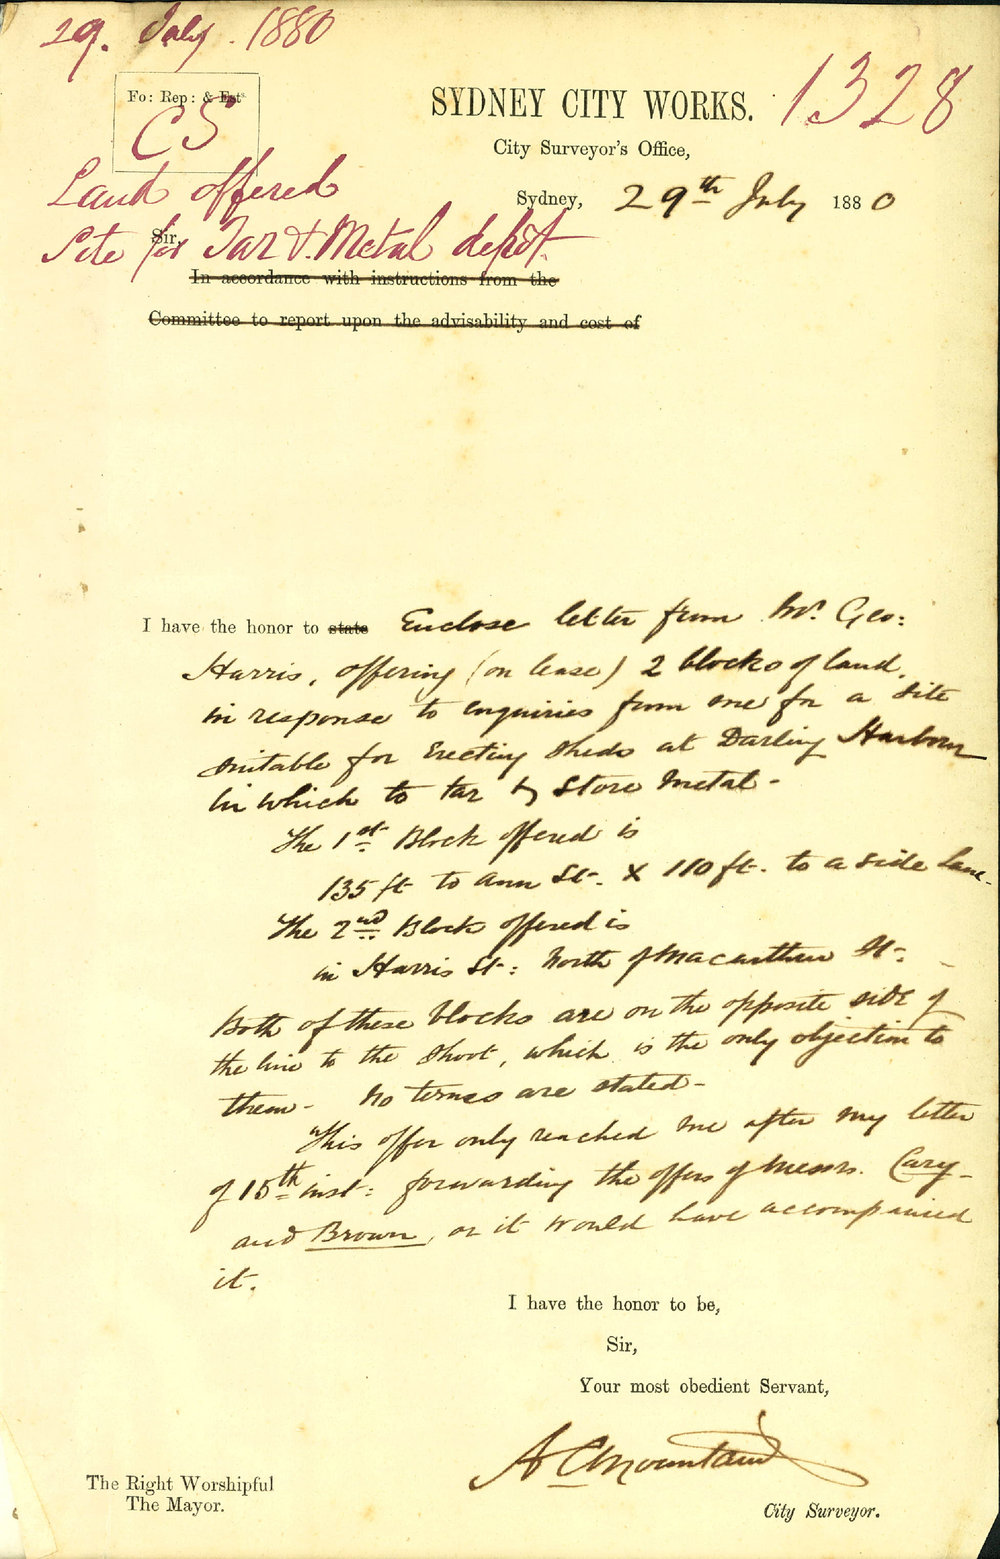 29. July. 1880
1328
Fo: Rep: & Ests
CS
SYDNEY CITY WORKS.
City Surveyor's Office,
Land offered
Sydney, 29th July 1880
Sir,
Site for Tar & Metal depôt.
In accordance with instructions from the
Committee to report upon the advisability and cost of
I have the honor to state Enclose letter from Mr. Geo:
Harris, offering (on lease) 2 blocks of land,
in response to enquiries from me for a site
suitable for Erecting sheds at Darling Harbour
in which to tar & store metal -
The 1st Block offered is
135 ft to Ann St. X 110 ft. to a side lane.
The 2nd Block offered is
in Harris St: North of Macarthur St.
Both of these blocks are on the opposite side of
the line to the shoot, which is the only objection to
them - No terms are stated -
This offer only reached me after my letter
of 15th inst: forwarding the offers of Messrs. Cary
and Brown, or it would have accompanied
it.
I have the honor to be,
Sir,
Your most obedient Servant,
A C Mountain
The Right Worshipful
The Mayor.
City Surveyor.